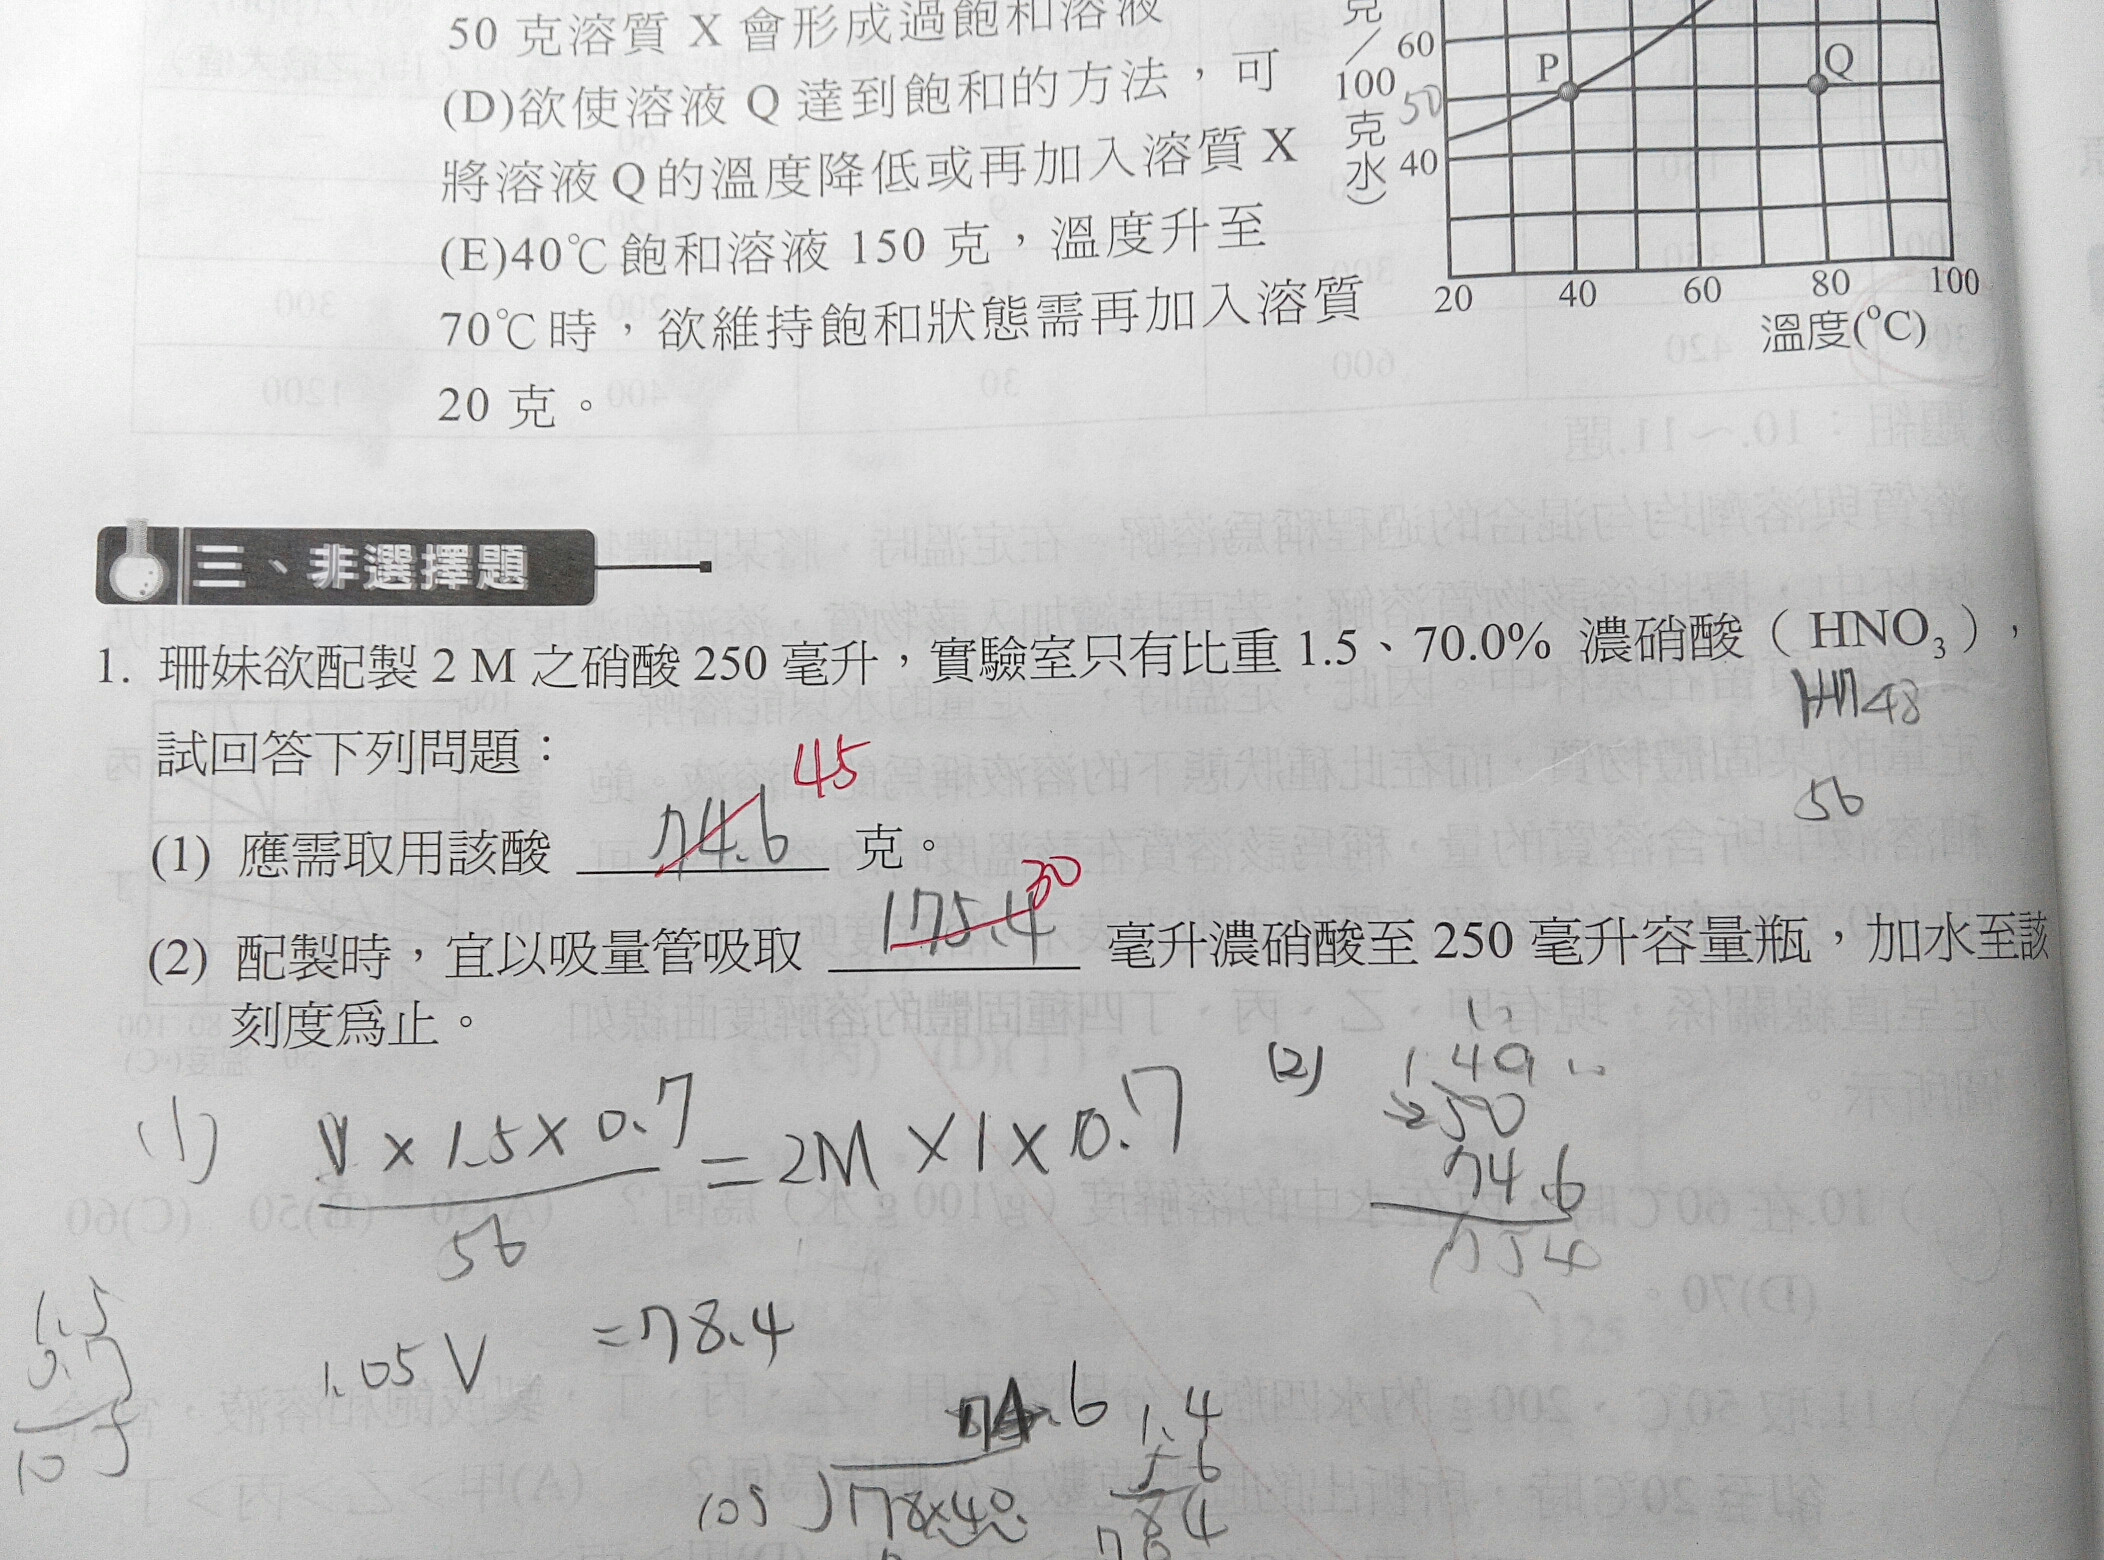 50 克溶質 X 會形成過飽和溶液
(D)欲使溶液 Q 達到飽和的方法，可
將溶液 Q 的溫度降低或再加入溶質 X
(E)40℃飽和溶液 150 克，溫度升至
70℃時，欲維持飽和狀態需再加入溶質
20 克。
克/100克水)
60
50
40
P
Q
20 40 60 80 100
溫度(℃)
三、非選擇題
1. 珊妹欲配製 2 M 之硝酸 250 毫升，實驗室只有比重 1.5、70.0% 濃硝酸（ HNO₃），
48
試回答下列問題：
45
56
(1) 應需取用該酸 74.6 克。
30
(2) 配製時，宜以吸量管吸取 175.4 毫升濃硝酸至 250 毫升容量瓶，加水至該
刻度為止。
(1) V×1.5×0.7/56 = 2M×1×0.7
1.05V = 78.4
(2)
250
74.6
1754
1.5
0.7
105
74.6
105 ) 7840
1.4
56
84